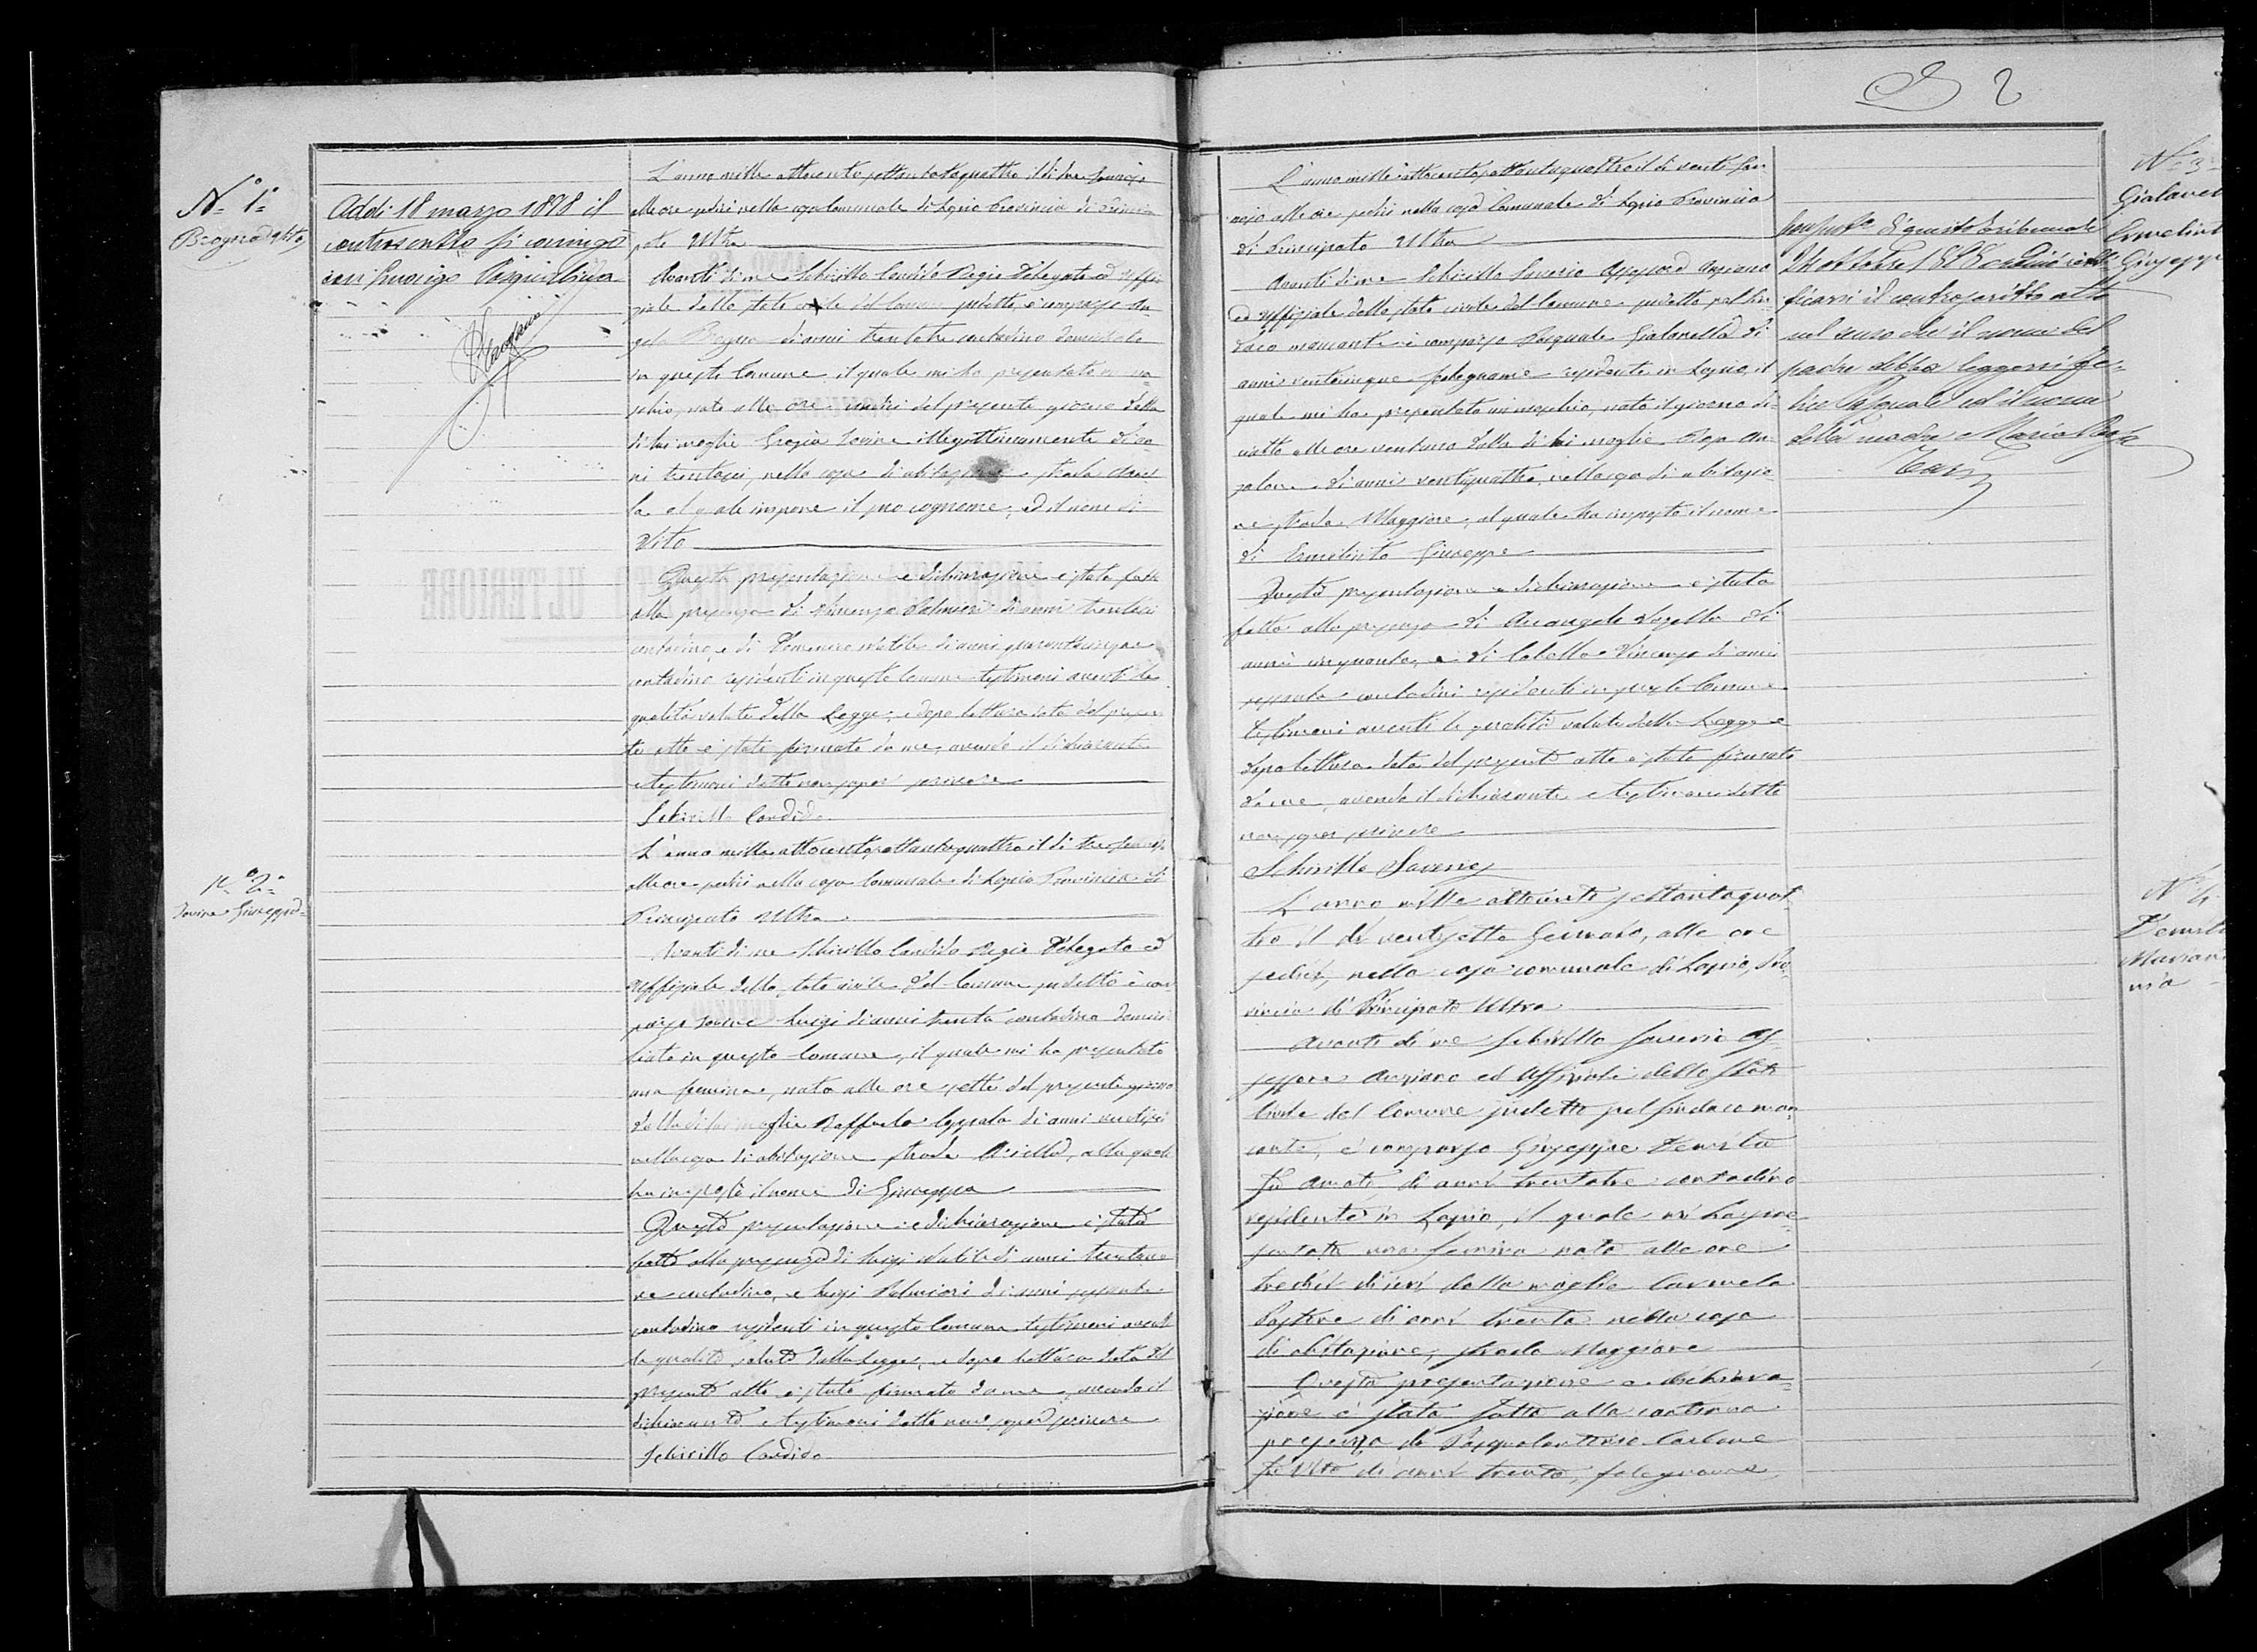 2
N.° 1°
Brogna Vito
Addi 18 marzo 1898 il
controscritto si coniugò
con
L'anno mille ottocento settantaquattro il di tre Gennajo
alle ore sedici nella casa Comunale di Lapio Provincia di Princi
pato Ultra
Avanti di me Schirillo Candido Regio Delegato ed Uffi
ziale dello stato civile del Comune sudetto, è comparso An
gelo Brogna di anni trentatre contadino domiciliato
in questo Comune, il quale mi ha presentato un ma
schio, nato alle ore undici del presente giorno dalla
di lui moglie Grazia Iovine legittimamente di an
ni trentasei, nella casa di abitazione strada
la al quale impone il suo cognome, ed il nome di
Vito
Questa presentazione e dichiarazione è stata fatta
alla presenza di Vincenzo Palmieri di anni
contadino, e di Domenico di anni quarantacinque
contadino residenti in questo Comune testimoni aventi le
qualità volute dalla Legge, e dopo lettura data del presen
te atto è stato firmato da me, avendo il dichiarante
e testimoni detto non saper scrivere
Schirillo Candido
N.° 2°
Iovine Giuseppa
L'anno mille ottocento settantaquattro il di tre Gennajo
alle ore sedici nella casa Comunale di Lapio Provincia di
Principato Ultra
Avanti di me Schirillo Candido Regio Delegato ed
Uffiziale dello stato civile del Comune sudetto è com
parso Iovine Luigi di anni trenta contadino domici
liato in questo Comune, il quale mi ha presentato
una femina, nata alle ore sette del presente giorno
dalla di lui moglie Raffaela di anni ventisei
nella casa di abitazione strada Ariella, alla quale
ha imposto il nome di Giuseppa
Questa presentazione e dichiarazione è stata
fatta alla presenza di Luigi di anni trentano
ve contadino, e Luigi Palmieri di anni sessanta
contadino residenti in questo Comune testimoni aventi
le qualità volute dalla Legge, e dopo lettura data del
presente atto è stato firmato da me, avendo il
dichiarante e testimoni detto non saper scrivere
Schirillo Candido
N.° 3
Gialanel
Ermelint
Giuseppe
L'anno mille ottocento settantaquattro il di venti Gen
najo alle ore sedici nella casa Comunale di Lapio Provincia
di Principato Ultra
Avanti di me Schirillo Saverio Assessore Anziano
ed Uffiziale dello stato civile del Comune sudetto pel Sin
daco mancante è comparso Pasquale Gialanella di
anni venticinque falegname residente in Lapio, il
quale mi ha presentato un maschio, nato il giorno di
ciotto alle ore ventuno dalla di lui moglie Rosa An
zalone di anni ventiquattro, nella casa di abitazio
ne strada Maggiore, al quale ha imposto il nome
di Ermelinto Giuseppe
Questa presentazione e dichiarazione è stata
fatta alla presenza di Arcangelo di
anni cinquanta, e di Vincenzo di anni
sessanta contadini residenti in questo Comune
testimoni aventi le qualità volute dalla Legge e
dopo lettura data del presente atto è stato firmato
da me, avendo il dichiarante e testimoni detto
non saper scrivere
Schirillo Saverio
di questo Tribunale
24 ottobre 1885 ordinò retti
ficarsi il controscritto atto
nel senso che il nome del
padre debba leggersi Fe=
lice Pasquale ed il nome
della madre Maria Rosa
N.° 4
Demita
Marian
nia
L'anno mille ottocento settantaquat
tro il dì ventisette Gennaio, alle ore
sedici, nella casa comunale di Lapio, Pro
vincia di Principato Ultra
Avanti di me Schirillo Saverio As
sessore Anziano ed Uffiziale dello Stato
Civile del Comune sudetto pel Sindaco man
cante, è comparso Giuseppe Demita
fu Amato di anni trentatre contadino
residente in Lapio, il quale mi ha pre
sentato una femina nata alle ore
tredici di ieri dalla moglie Carmela
Pastore di anni trenta nella casa
di abitazione, strada Maggiore
Questa presentazione e dichiara=
zione è stata fatta alla continua
presenza di Pasqualantonio Carbone
fu Vito di anni trenta, falegname,